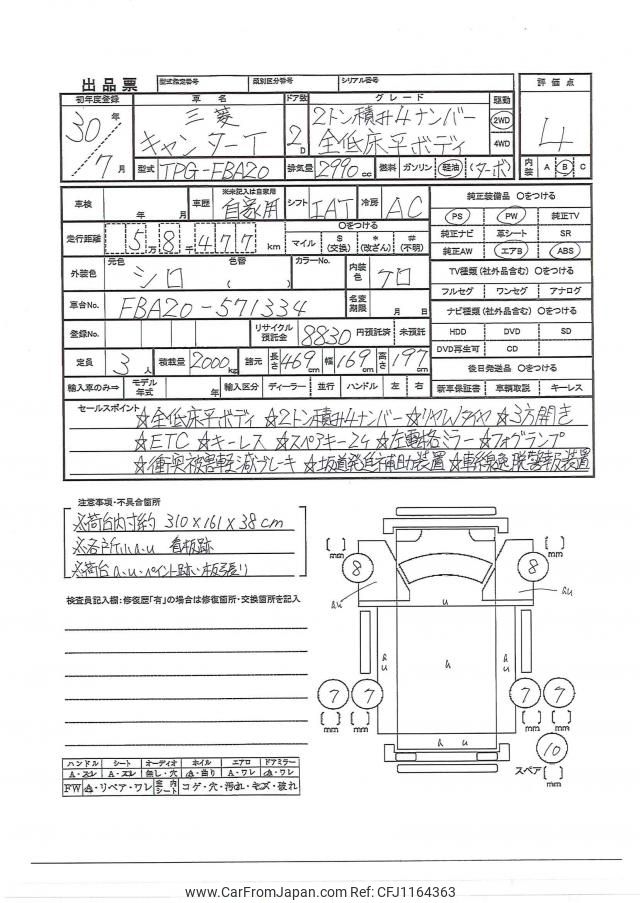 出品票 型式指定番号 類別区分番号 シリアル番号
初年度登録 車名 ドア数 グレード 駆動 評価点
30年 三菱 2D 2トン積み4ナンバー 2WD 4
7月 キャンターT 全低床平ボディ 4WD
型式 TPG-FBA20 排気量 2990cc 燃料 ガソリン 軽油 (ターボ) 内装 A B C
車検 年 月 車歴 ※未記入は自家用 自家用 シフト IAT 冷房 AC 純正装備品 〇をつける
PS PW 純正TV
走行距離 5万8千477km 〇をつける
マイル $(交換) *(改ざん) #(不明)
純正ナビ 革シート SR
純正AW エアB ABS
外装色 元色 シロ 色替 ( ) カラーNo. 内装色 クロ
TV種類(社外品含む) 〇をつける
フルセグ ワンセグ アナログ
車台No. FBA20-571334 名変期限 月 日
ナビ種類(社外品含む) 〇をつける
登録No. リサイクル預託金 8830 円預託済 未預託
HDD DVD SD
DVD再生可 CD
定員 3人 積載量 2000kg 諸元 長さ 469cm 幅 169cm 高さ 197cm
後日発送品 〇をつける
輸入車のみ⇒ モデル年式 年 輸入区分 ディーラー 並行 ハンドル 左 右 新車保証書 車輌取説 キーレス
セールスポイント ☆全低床平ボディ ☆2トン積み4ナンバー ☆リヤWタイヤ ☆3方開き
☆ETC ☆キーレス ☆スペアキー2ケ ☆左電格ミラー ☆フォグランプ
☆衝突被害軽減ブレーキ ☆坂道発進補助装置 ☆車線逸脱警報装置
注意事項・不具合箇所
※荷台内寸約 310×161×38cm
※各所小A・U 看板跡
※荷台A・U・ペイント跡・板張り
検査員記入欄:修復歴「有」の場合は修復箇所・交換箇所を記入
[ ] mm 8 8 [ ] mm
AU U AU
A U A A U
7 7 7 7
[ ] [ ] [ ] [ ]
mm mm mm mm
A U
10
スペア [ ] mm
ハンドル シート オーディオ ホイル エアロ ドアミラー
A・スレ A・スレ 無し・穴 A・曲り A・ワレ A・ワレ
FW A・リペア・ワレ 室内シート コゲ・穴・汚れ・キズ・破れ
www.CarFromJapan.com Ref:CFJ1164363